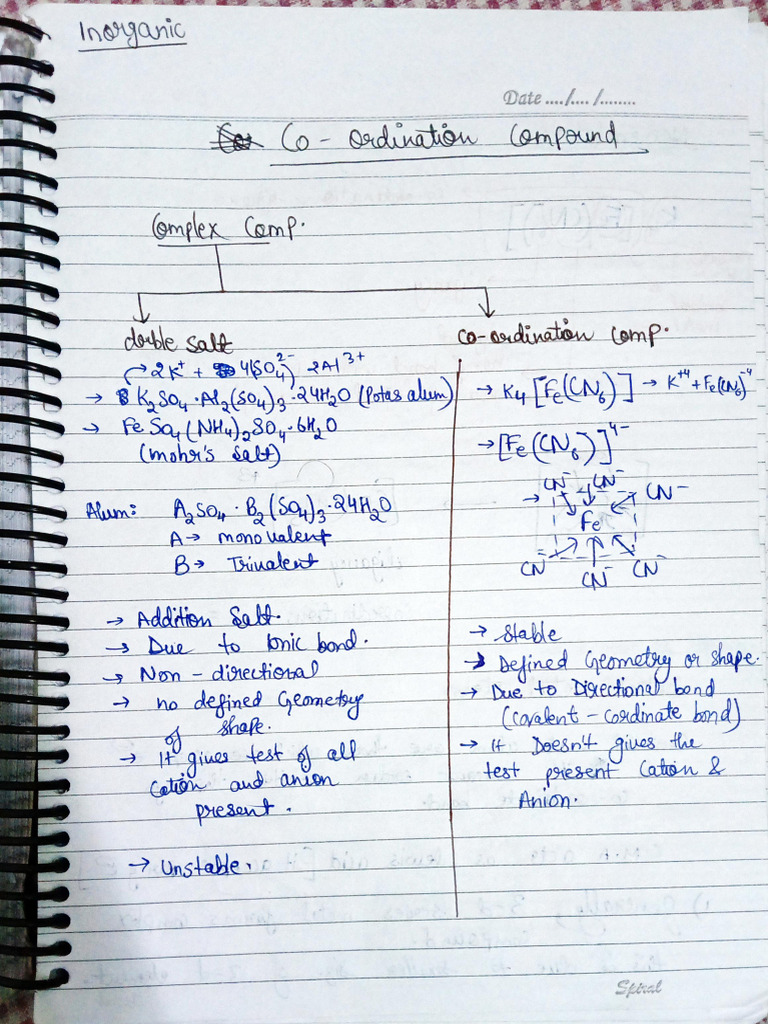 Inorganic
Date ..../..../........
Co-ordination Compound
Complex Comp.
double salt
→ 2K⁺ + 4(SO₄)²⁻ 2Al³⁺
→ K₂SO₄·Al₂(SO₄)₃·24H₂O (Potas alum)
→ FeSO₄(NH₄)₂SO₄·6H₂O
(mohr's salt)
Alum: A₂SO₄·B₂(SO₄)₃·24H₂O
A → monovalent
B → Trivalent
→ Addition Salt.
→ Due to Ionic bond.
→ Non-directional
→ no defined Geometry
of shape.
→ It gives test of all
Cation and anion
present.
→ Unstable.
Co-ordination Comp.
→ K₄[Fe(CN₆)] → K⁺⁴ + Fe(CN₆)⁻⁴
→ [Fe(CN₆)]⁴⁻
→ CN⁻ CN⁻ CN⁻
Fe
CN⁻ CN⁻ CN⁻
→ Stable
→ Defined Geometry or shape.
→ Due to Directional bond
(Covalent-cordinate bond)
→ It Doesn't gives the
test present Cation &
Anion.
Spiral